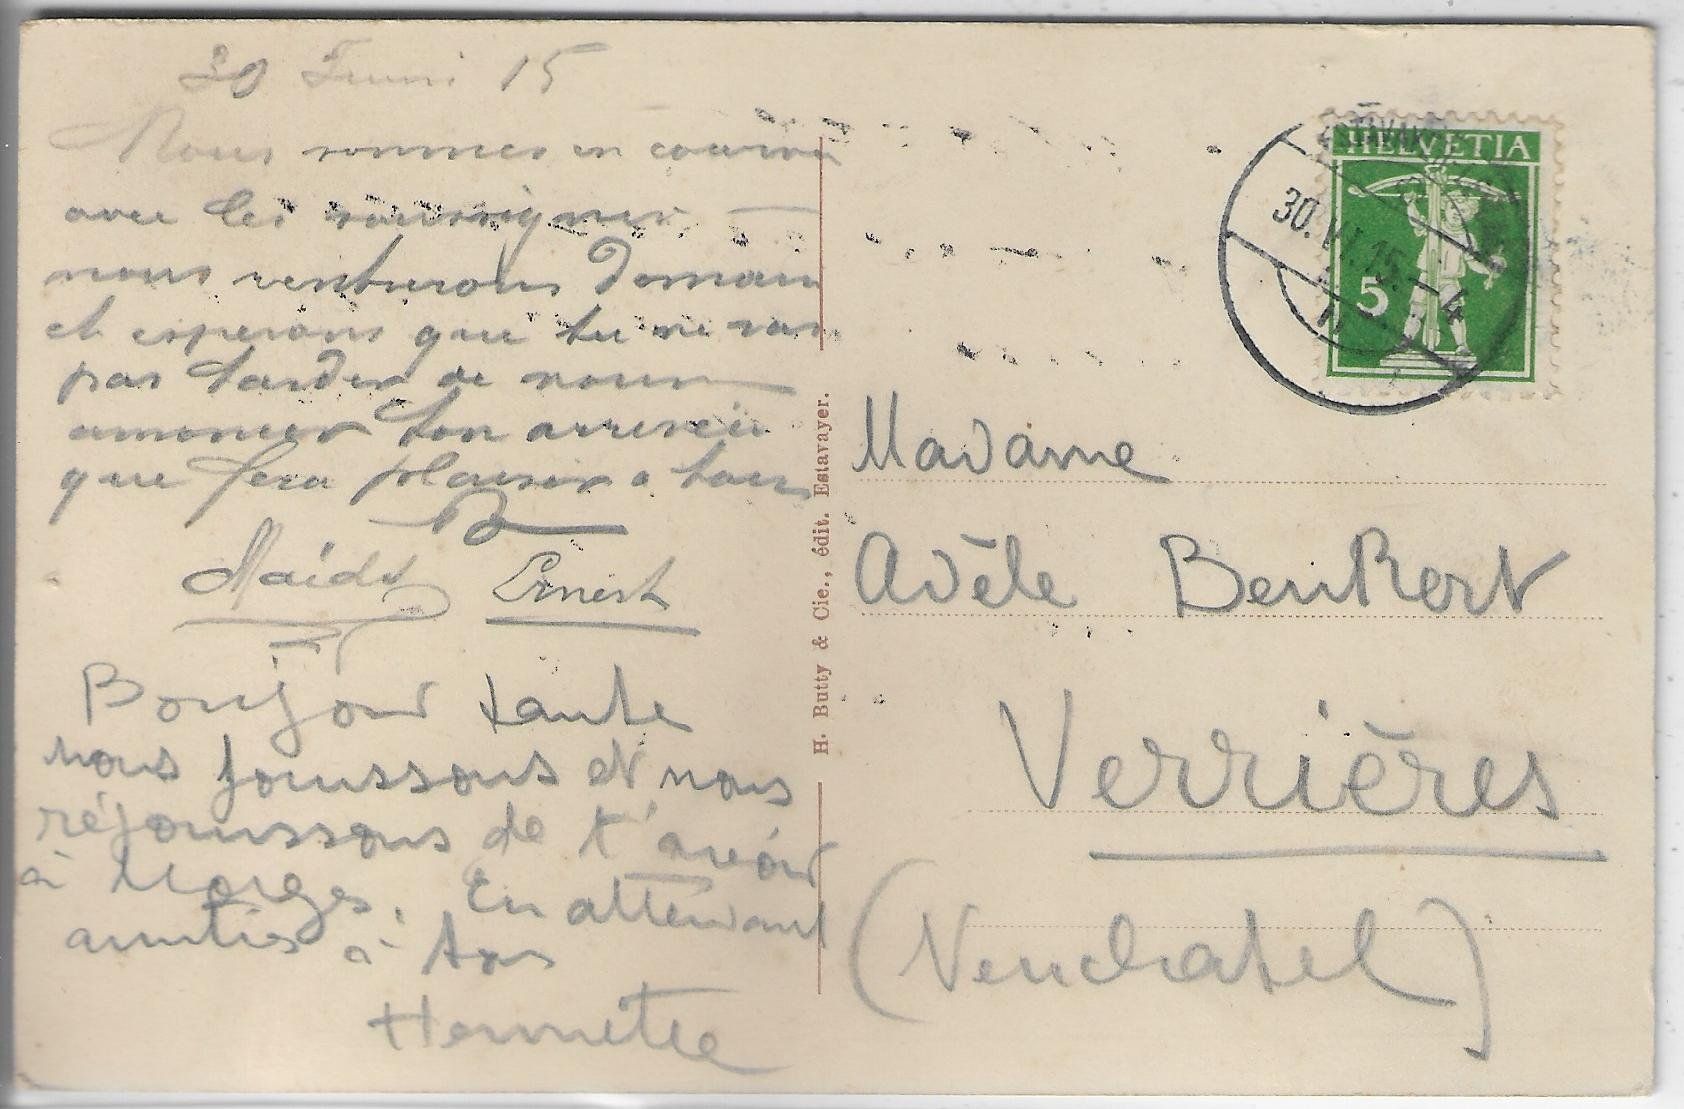 30 Juin 15
Nous sommes en course
avec les soussignés
nous rentrerons Demain
et esperons que tu ne vas
pas tarder de nous
anoncer ton arrivée
que fera plaisir a tous
Ernest
Bonjour tante
nous jouissons et nous
réjouissons de t'avoir
à Morges. En attendant
amitiés à tous
H. Butty & Cie., édit. Estavayer.
HELVETIA
5
30.VI.15.-4
Madame
Adèle Benkert
Verrières
(Neuchatel)